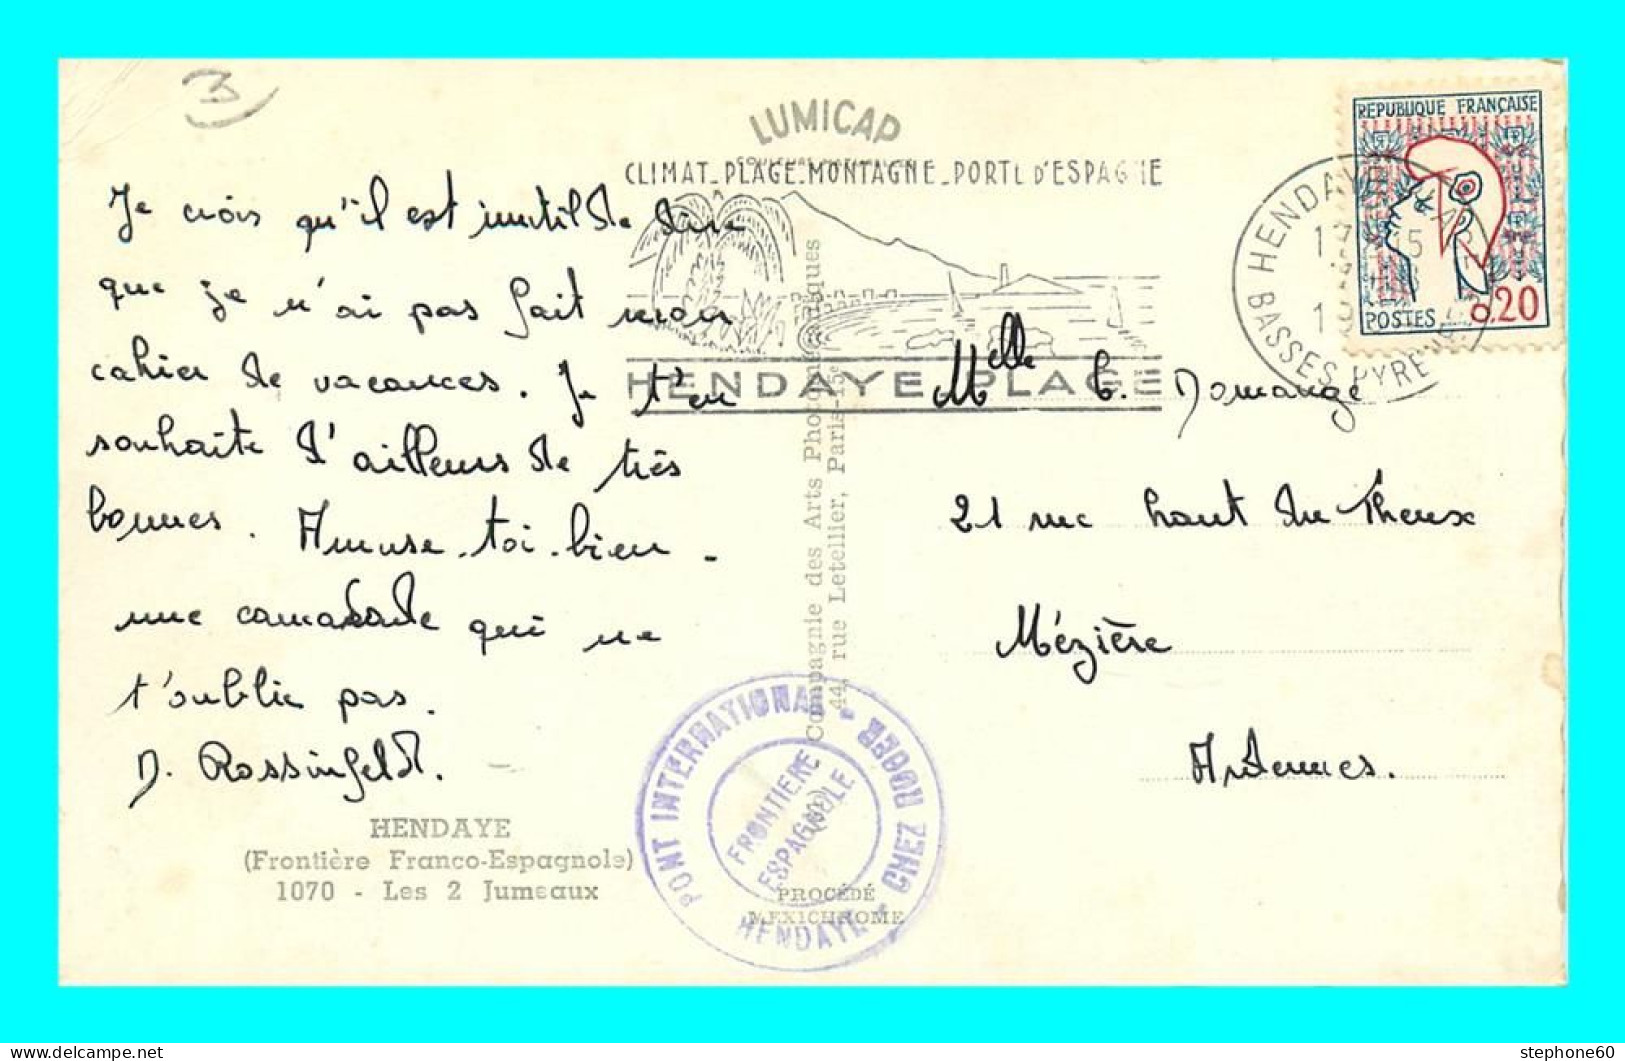 3
LUMICAP
CLIMAT_PLAGE_MONTAGNE_PORTE D'ESPAGNE
HENDAYE PLAGE
REPUBLIQUE FRANÇAISE
POSTES
0.20
HENDAYE
BASSES PYRENEES
Je crois qu'il est inutil de dire
que je n'ai pas fait mon
cahier de vacances. Je t'en
souhaite d'ailleurs de très
bonnes. Amuse-toi-bien -
une camarade qui ne
t'oublie pas.
D. Rossinfeld.
Mlle C. Domange
21 rue haut du Theux
Mézière
Ardennes.
Compagnie des Arts Photomécaniques
44, rue Letellier, Paris-15e
HENDAYE
(Frontière Franco-Espagnole)
1070 - Les 2 Jumeaux
PONT INTERNATIONAL - CHEZ ROGER - HENDAYE -
FRONTIERE
ESPAGNOLE
PROCÉDÉ
MEXICHROME
stephone60